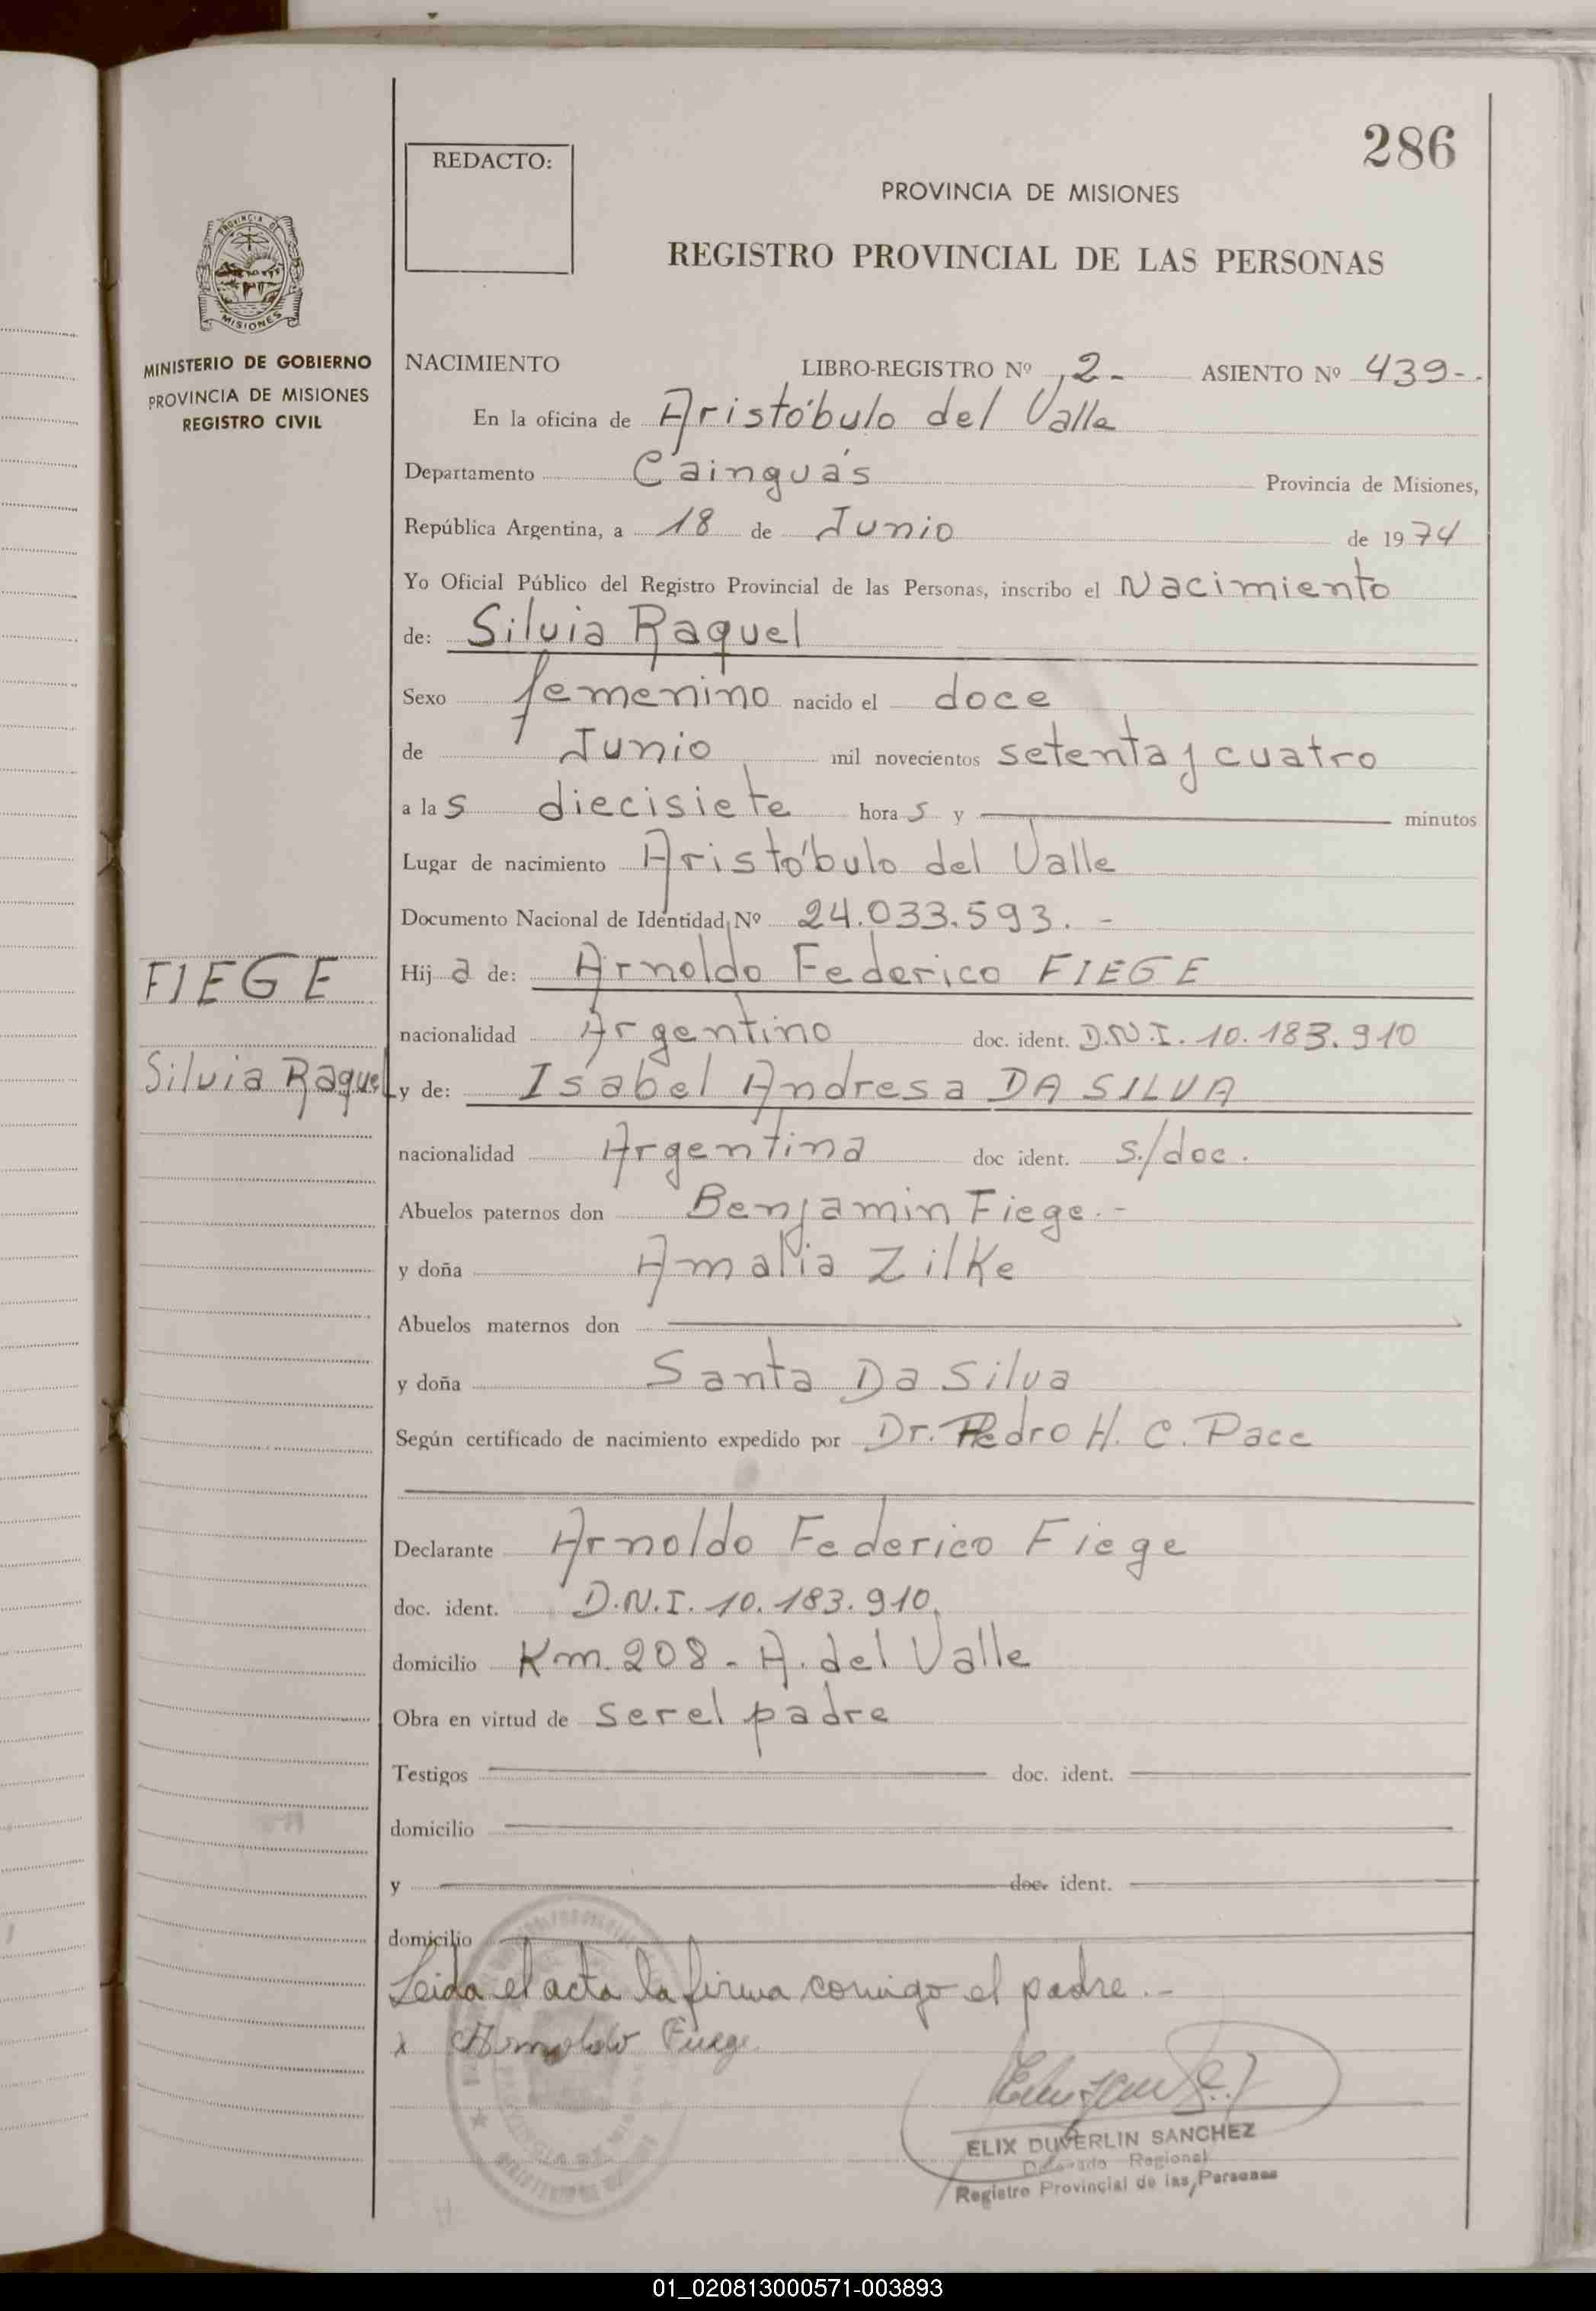 286
REDACTO:
PROVINCIA DE MISIONES
REGISTRO PROVINCIAL DE LAS PERSONAS
PROVINCIA DE
MISIONES
MINISTERIO DE GOBIERNO
PROVINCIA DE MISIONES
REGISTRO CIVIL
NACIMIENTO LIBRO-REGISTRO Nº 2- ASIENTO Nº 439-.
En la oficina de Aristóbulo del Valle
Departamento Cainguás Provincia de Misiones,
República Argentina, a 18 de Junio de 1974
Yo Oficial Público del Registro Provincial de las Personas, inscribo el Nacimiento
de: Silvia Raquel
Sexo femenino nacido el doce
de Junio mil novecientos setenta y cuatro
a las diecisiete horas y minutos
Lugar de nacimiento Aristóbulo del Valle
Documento Nacional de Identidad Nº 24.033.593. -
FIEGE
Silvia Raquel
Hija de: Arnoldo Federico FIEGE
nacionalidad Argentino doc. ident. D.N.I. 10.183.910
y de: Isabel Andresa DA SILVA
nacionalidad Argentina doc ident. s./doc.
Abuelos paternos don Benjamin Fiege.-
y doña Amalia Zilke
Abuelos maternos don
y doña Santa Da Silva
Según certificado de nacimiento expedido por Dr. Pedro H. C. Pace
Declarante Arnoldo Federico Fiege
doc. ident. D.N.I. 10.183.910.
domicilio Km. 208 - A. del Valle
Obra en virtud de ser el padre
Testigos doc. ident.
domicilio
y doc. ident.
domicilio
Leida el acta la firma comigo el padre.-
x Arnoldo Fiege
ELIX DUVERLIN SANCHEZ
Delegado Regional
Registro Provincial de las Personas
01_020813000571-003893